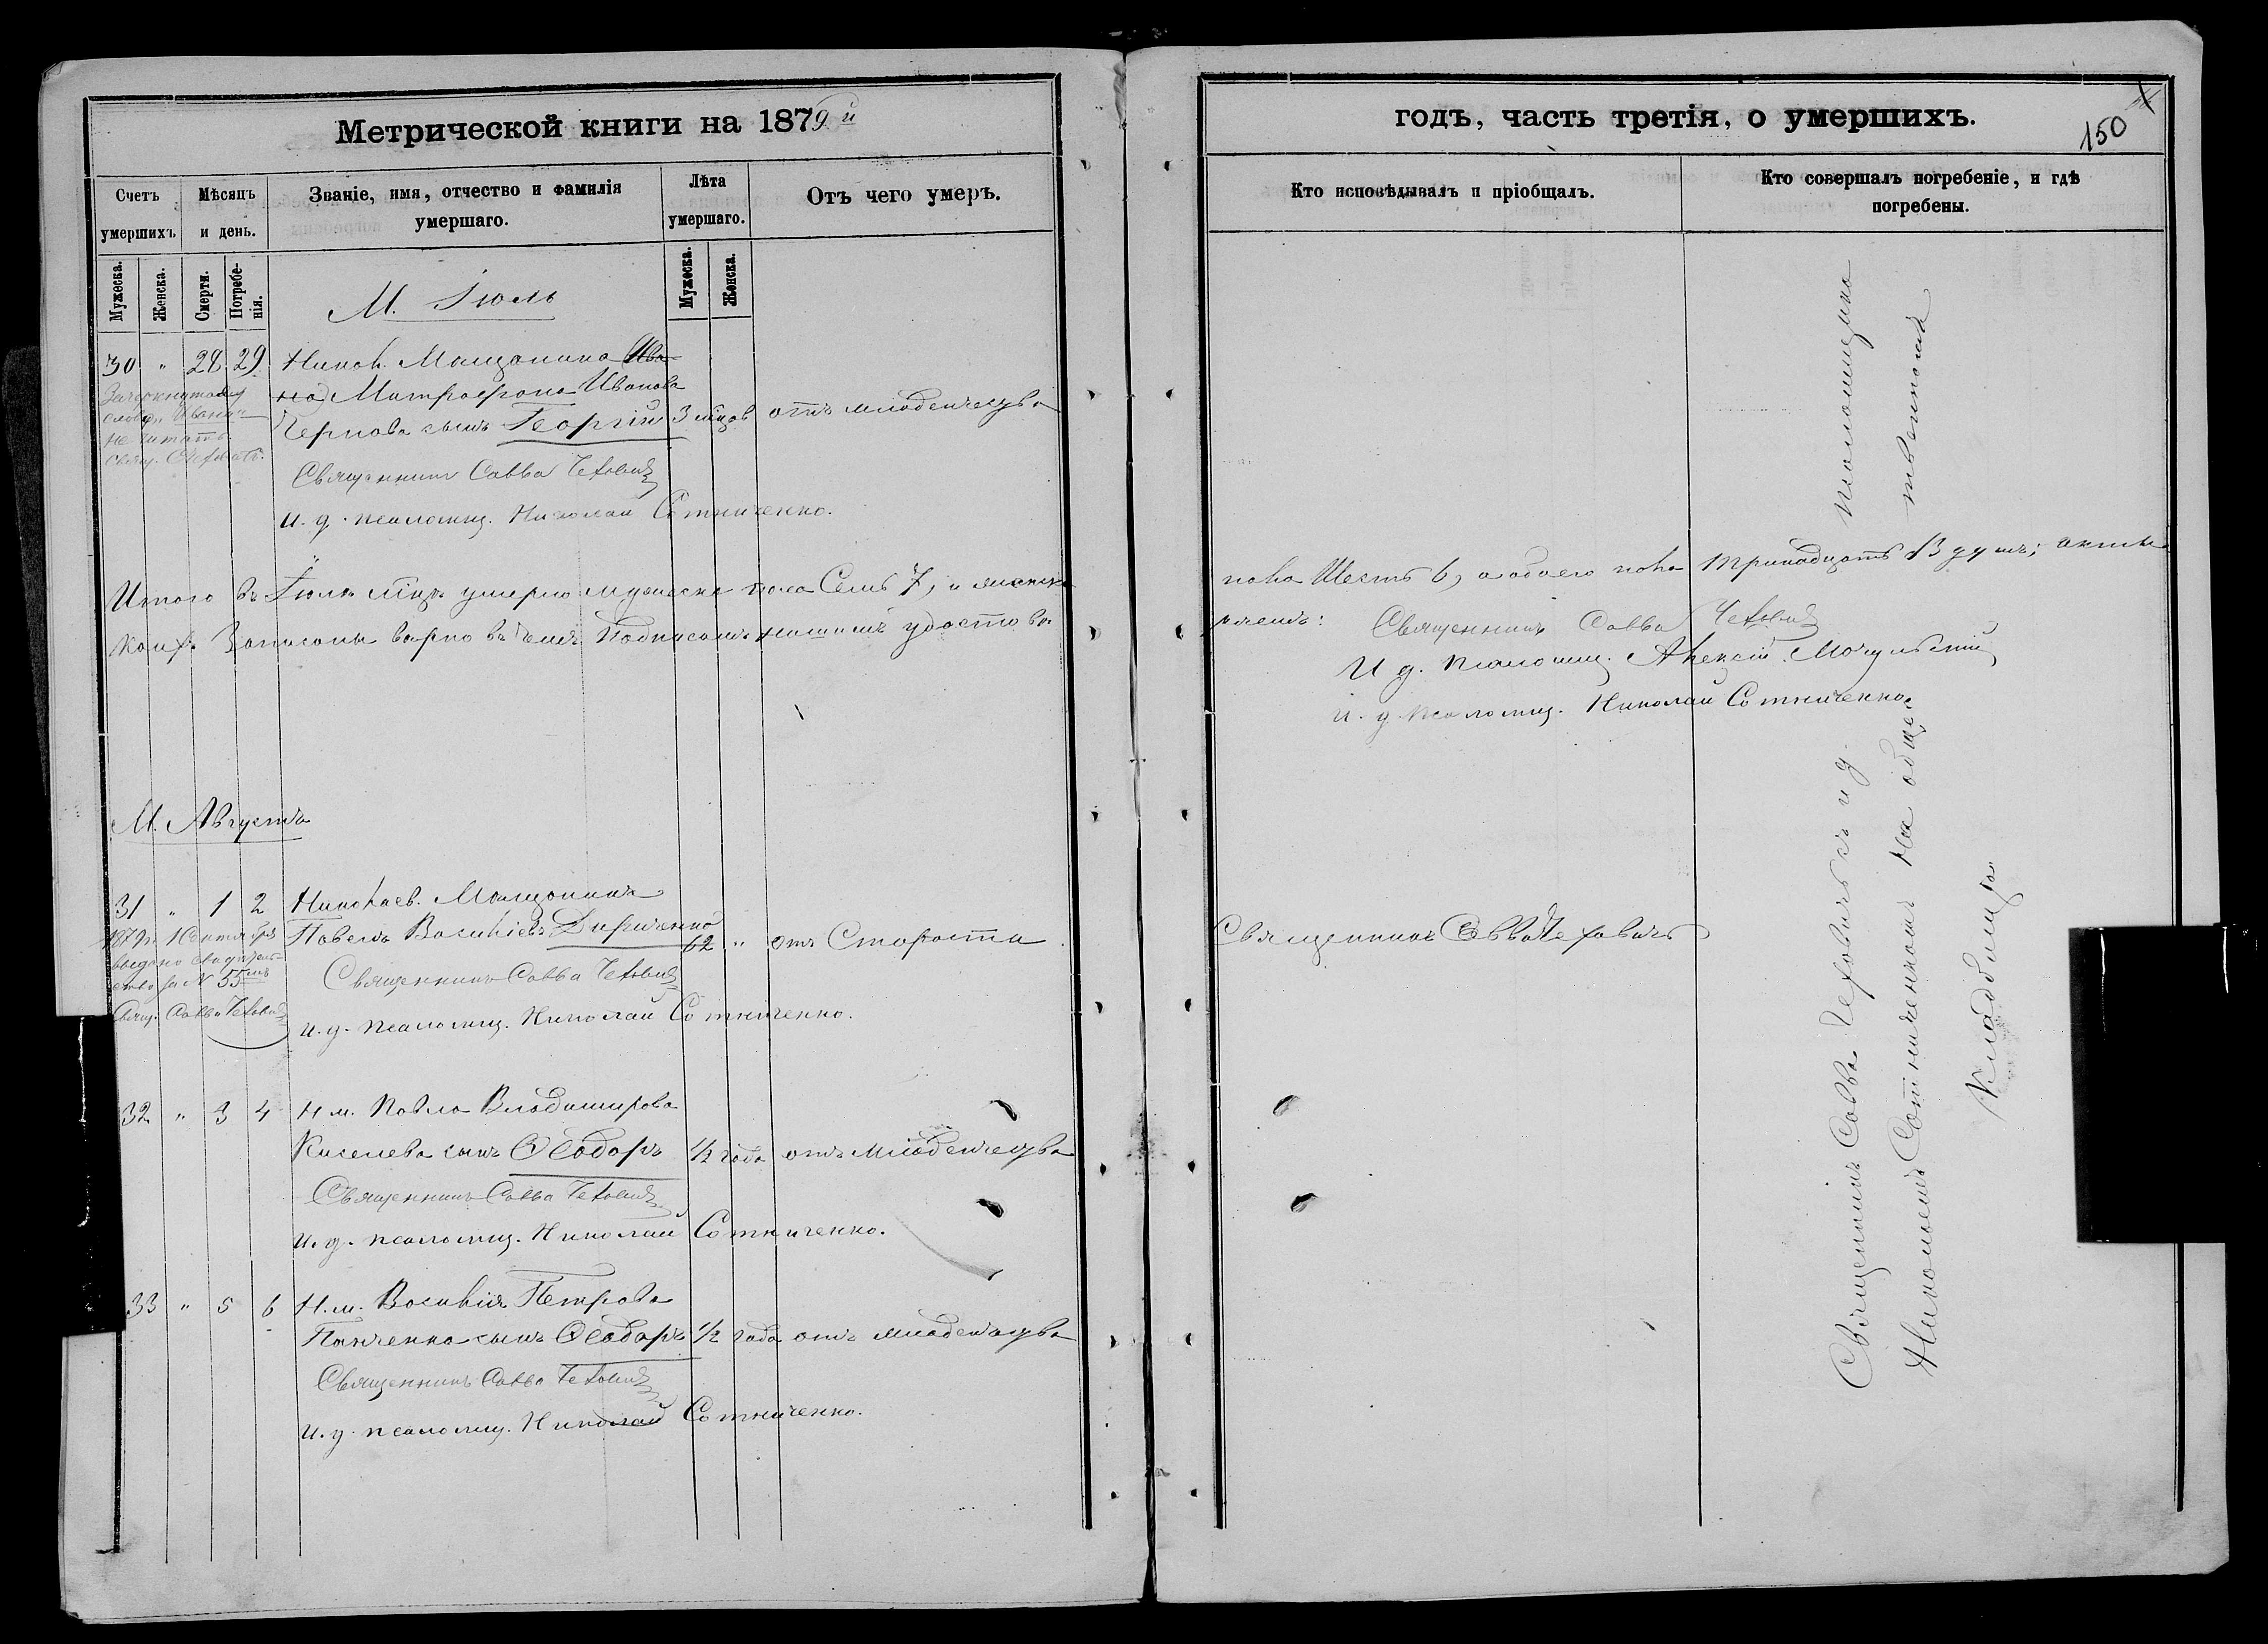 Метрической книги на 1879й
Счетъ умершихъ
Мѣсяцъ и день.
Званіе, имя, отчество и фамилія
умершаго.
Лѣта
умершаго.
Отъ чего умеръ.
Мужеска.
Женска.
Смерти.
Погребенія.
Мужеска.
Женска.
М. Іюль
30 " 28 29 Никол. Мѣщанина Ива-
на Митрофана Иванова
Чернова сынъ Георгій 3 мѣцов отъ младенчества
Зачеркнутое
слово "Ивана"
не читать.
Свящ. Чехович.
Священникъ Савва Чеховичъ
и. д. псаломщ. Николай Сотниченко.
Итого въ Іюлѣ мцѣ умерло мужеска пола Семь 7, и женска
коихъ Записаны вѣрно въ чемъ Подписомъ нашимъ удостовѣ-
М. Августъ
31 " 1 2 Николаев. Мѣщанинъ
Павелъ Василіевъ Дириченко
62 " отъ Старости
1879 г. выдано свидѣтель-
ство за N 55мъ
Свящ. Савва Чеховичъ
Священникъ Савва Чеховичъ
и. д. псаломщ. Николай Сотниченко.
32 " 3 4 Н. м. Павла Владимирова
Киселева сынъ Ѳеодоръ 1/2 года отъ младенчества
Священникъ Савва Чеховичъ
и. д. псаломщ. Николай Сотниченко.
33 " 5 6 Н. м. Василія Петрова
Панченка сынъ Ѳеодоръ 1/2 года отъ младенчества
Священникъ Савва Чеховичъ
и. д. псаломщ. Николай Сотниченко.
годъ, часть третія, о умершихъ.
150
Кто исповѣдывалъ и пріобщалъ.
Кто совершалъ погребеніе, и гдѣ
погребены.
пола Шесть 6, а обоего пола тринадцать 13 душъ; акты
ряемъ:
Священникъ Савва Чеховичъ
И д. псаломщ. Алексій Мочульскій
и. д. псаломщ. Николай Сотниченко
Священникъ Савва Чеховичъ
Священникъ Савва Чеховичъ съ и д. псаломщика
Николаемъ Сотниченкомъ на обще-
ственномъ
Кладбищѣ